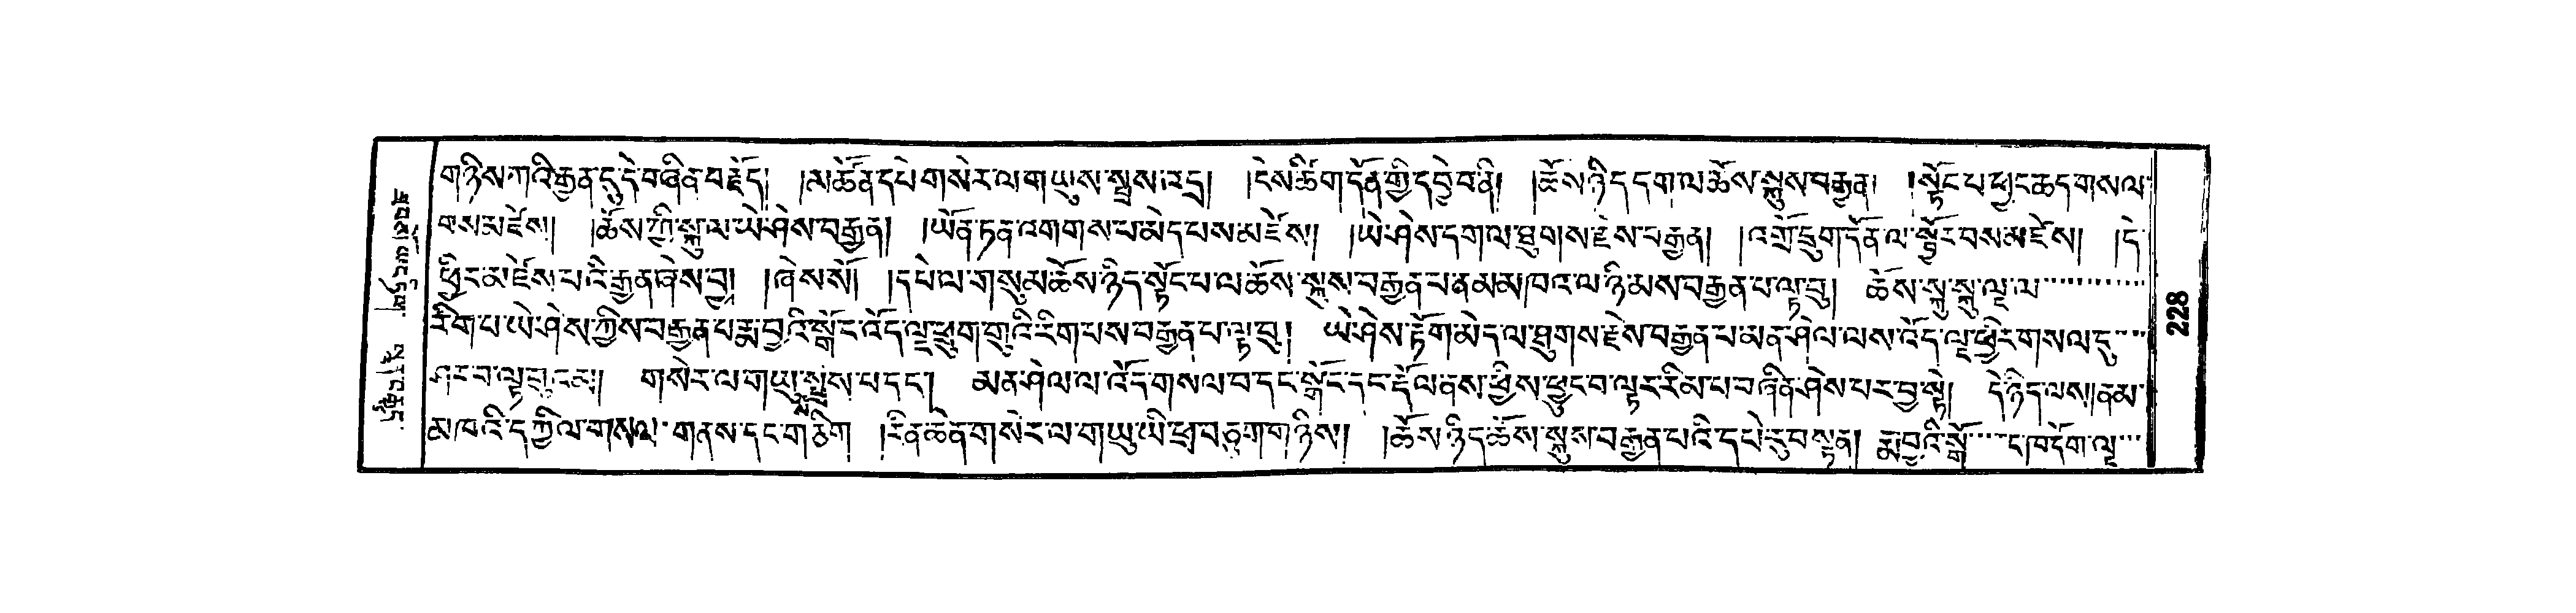 གཉིས་ཀའི་རྒྱན་དུ་དེ་བཞིན་བརྗོད། །མཚོན་དཔེ་གསེར་ལ་གཡུས་སྤྲས་འདྲ། །ངེས་ཚིག་དོན་གྱི་དབྱེ་བ་ནི། །ཆོས་ཉིད་དག་ལ་ཆོས་སྐུས་བརྒྱན། །སྟོང་པ་ཕྱང་ཆད་གསལ་
བས་མཛེས། །ཆོས་ཀྱི་སྐུ་ལ་ཡེ་ཤེས་བརྒྱན། །ཡོན་ཏན་འགགས་པ་མེད་པས་མཛེས། །ཡེ་ཤེས་དག་ལ་ཐུགས་རྗེས་བརྒྱན། །འགྲོ་དྲུག་དོན་ལ་སྦྱོར་བས་མཛེས། །དེ་
ཕྱིར་མཛེས་པའི་རྒྱན་ཞེས་བྱ། །ཞེས་སོ། །དཔེ་ལ་གསུམ་ཆོས་ཉིད་སྟོང་པ་ལ་ཆོས་སྐུས་བརྒྱན་པ་ནམ་མཁའ་ལ་ཉི་མས་བརྒྱན་པ་ལྟ་བུ། ཆོས་སྐུ་སྐུ་ལྔ་ལ་
རིག་པ་ཡེ་ཤེས་ཀྱིས་བརྒྱན་པ་རྨ་བྱའི་སྒོ་ང་འོད་ལྔ་ཕྲུག་གུའི་རིག་པས་བརྒྱན་པ་ལྟ་བུ། ཡེ་ཤེས་རྟོག་མེད་ལ་ཐུགས་རྗེས་བརྒྱན་པ་མན་ཤེལ་ལས་འོད་ལྔ་ཕྱིར་གསལ་དུ་
ཤར་བ་ལྟ་བུ་དང་། གསེར་ལ་གཡུ་སྤྲས་པ་དང་། མན་ཤེལ་ལ་འོད་གསལ་བ་དང་སྒོང་དང་རྡོལ་ནས་ཕྱིས་ཕྱུང་བ་ལྟར་རིམ་པ་བཞིན་ཤེས་པར་བྱ་སྟེ། དེ་ཉིད་ལས། ནམ་
མཁའི་དཀྱིལ་གསལ་གནས་དང་གཅིག །རིན་ཆེན་གསེར་ལ་གཡུ་ཡི་ཕྲ་བཅུག་གཉིས། །ཆོས་ཉིད་ཆོས་སྐུས་བརྒྱན་པའི་དཔེ་རུ་བསྟན། རྨ་བྱའི་སྒོ་ང་ཁ་དོག་ལྔ་
228